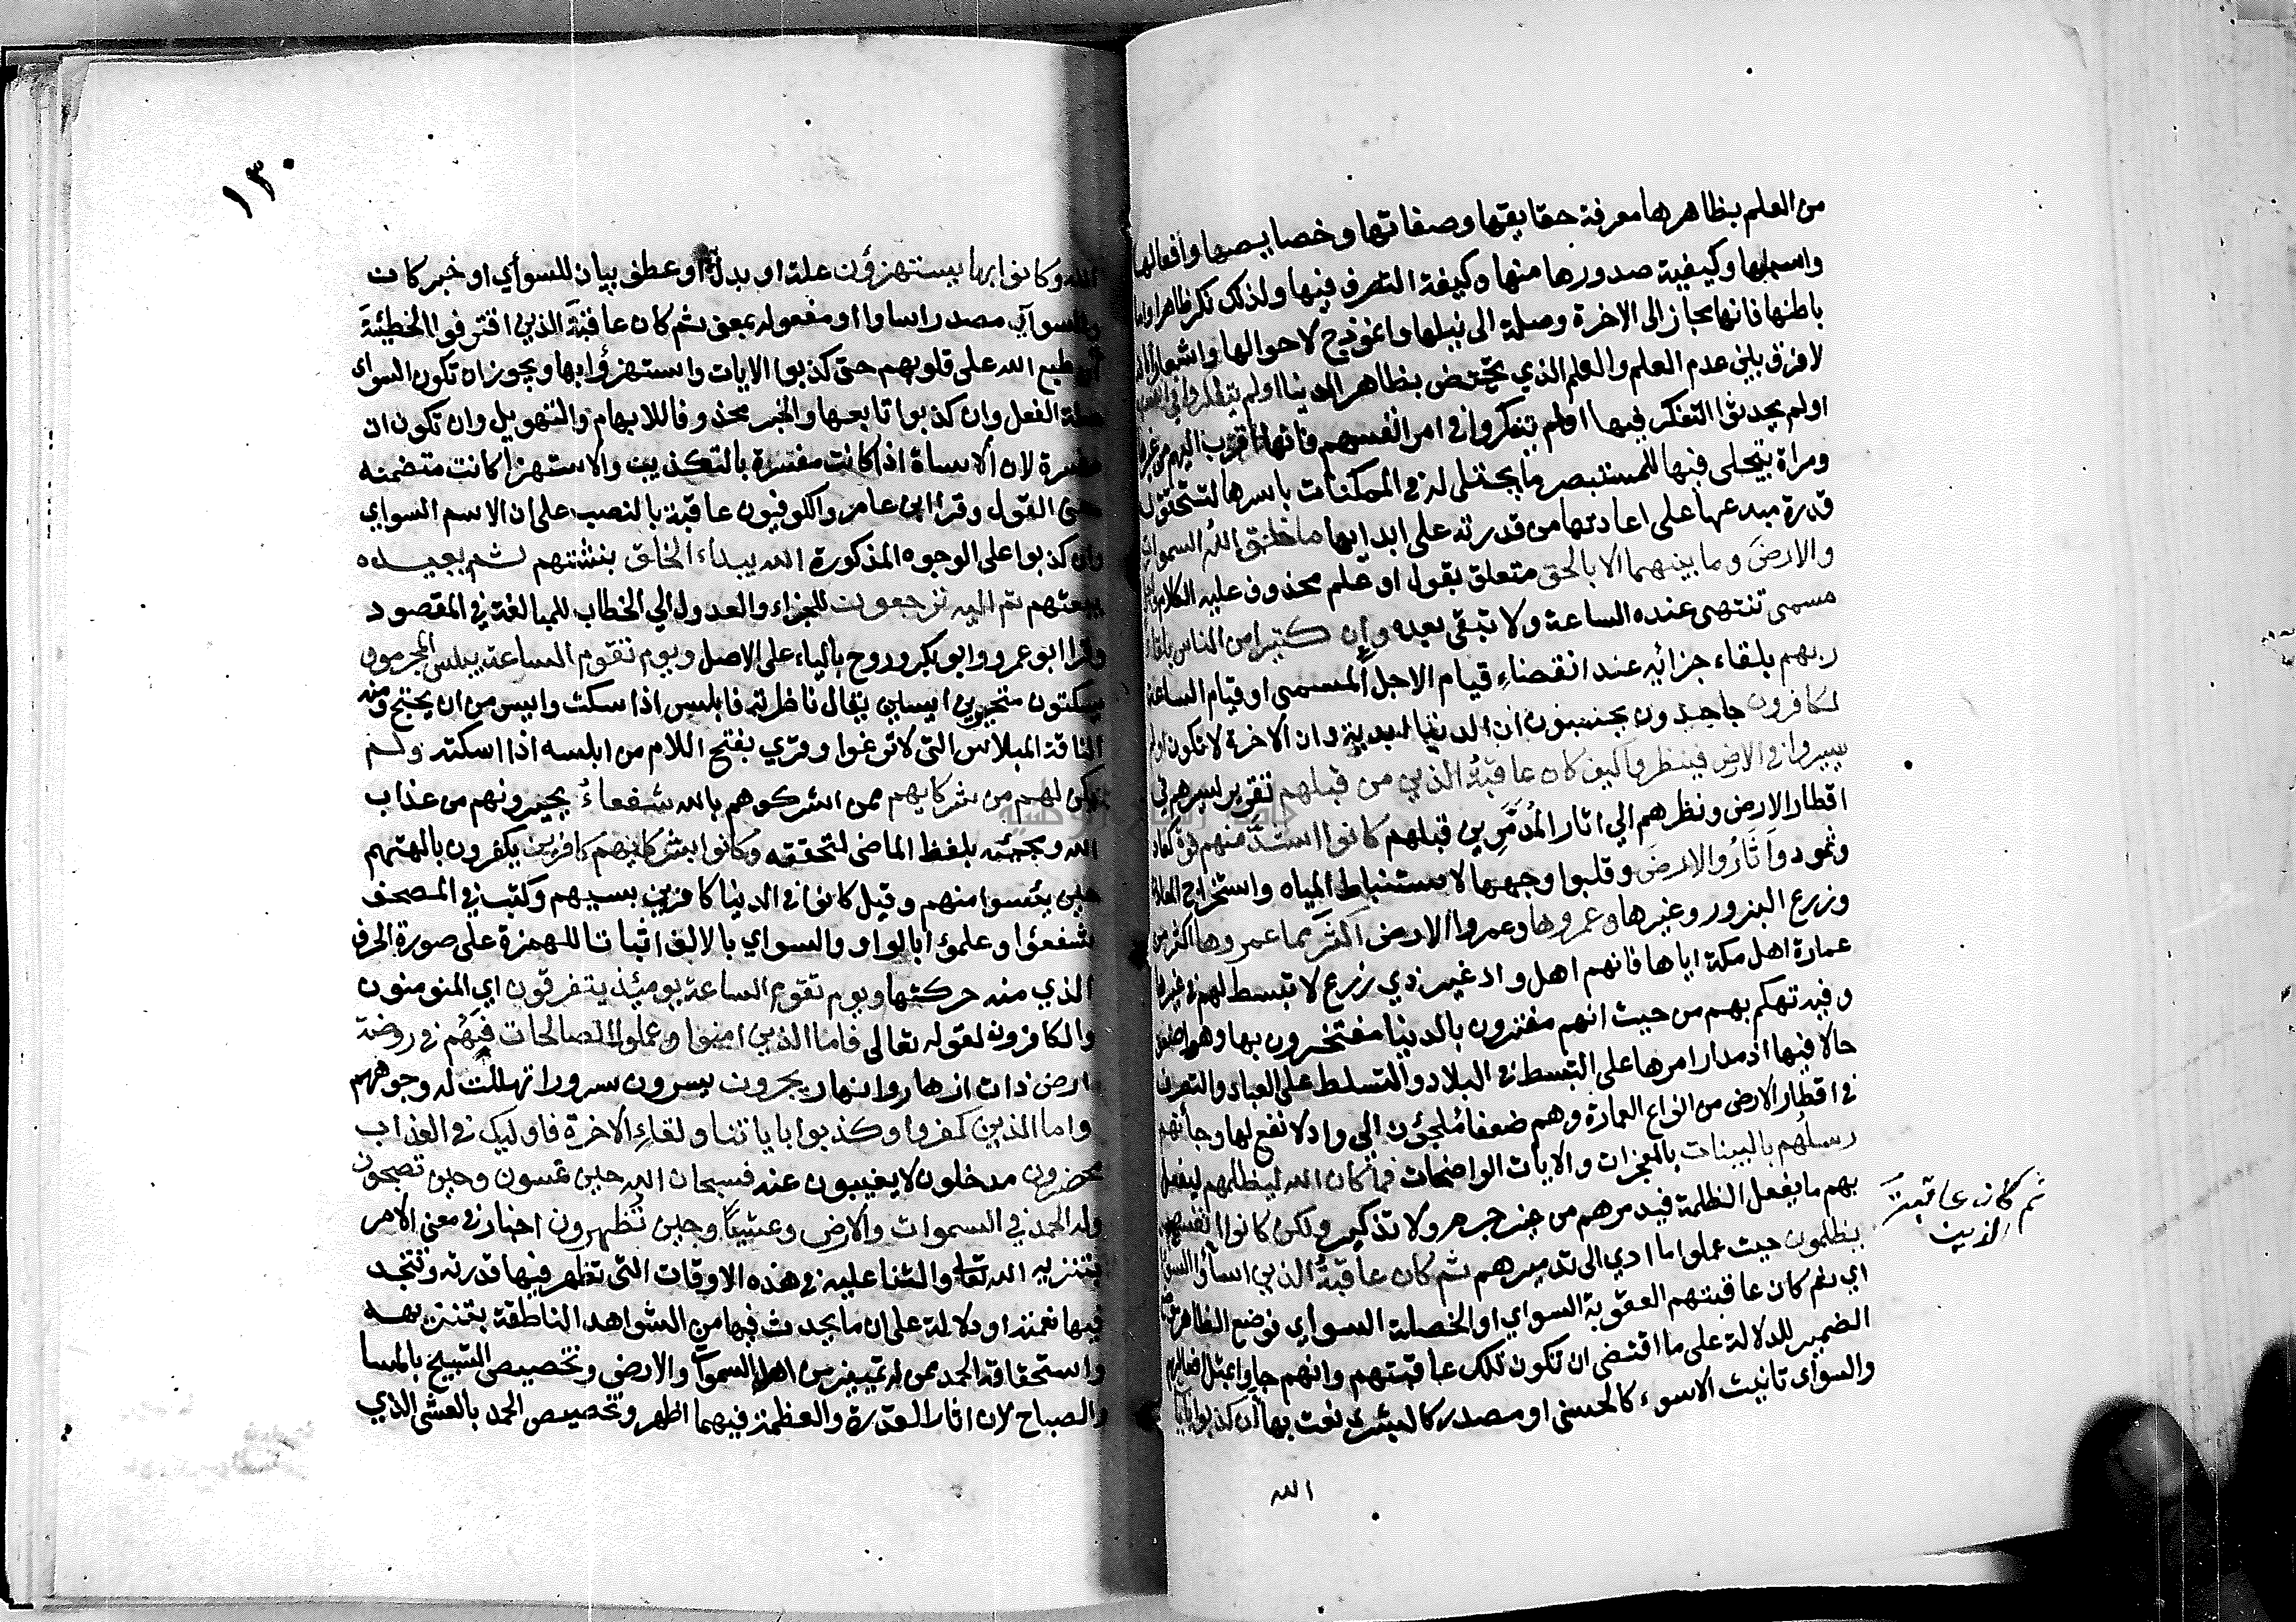 من العلم بظاهرها معرفة حقايقها وصفاتها وخصايصها وأفعالها
واسبابها وكيفية صدورها منها وكيفة التصرف فيها ولذلك نكر ظاهرا واما
باطنها فانها مجاز الى الاخرة وصلة الى نيلها وانموذج لاحوالها واشعارا
لا فرق بين عدم العلم والعلم الذي يختص بظاهر الدنيا اولم يتفكروا في انفسهم
اولم يحدثوا التفكر فيها اولم يتفكروا في امر انفسهم فانها اقرب اليهم من غيرها
ومراة يتجلى فيها للمستبصر ما يجتلى له في الممكنات باسرها لتتحقق
قدرة مبدعها على اعادتها من قدرته على ابدايها ما خلق الله السموات
والارض وما بينهما الا بالحق متعلق بقول او علم محذوف عليه الكلام واجل
مسمى تنتهى عنده الساعة ولا تبقى بعده وان كثيرا من الناس بلقاء
ربهم بلقاء جزائه عند انقضاء قيام الاجل المسمى او قيام الساعة
لكافرون جاحدون يحسبون ان الدنيا ابدية وان الاخرة لا تكون اولم
يسيروا في الارض فينظروا كيف كان عاقبة الذين من قبلهم تقرير لسيرهم في
اقطار الارض ونظرهم الي اثار المدمرين قبلهم كانوا اشد منهم قوة كعاد
وثمود وَاَثَارُوا الارض وقلبوا وجهها لاستنباط المياه واستخراج المعادن
وزرع البزور وغيرها وعمروها وعمروا الارض اكثر مما عمروها اكثر من
عمارة اهل مكة اياها فانهم اهل واد غير ذي زرع لا تبسط لهم في غيرها
وفيه تهكم بهم من حيث انهم مغترون بالدنيا مفتخرون بها وهم اضعف
حالا فيها اذ مدار امرها على التبسط في البلاد والتسلط على العباد والتصرف
في اقطار الارض من انواع العمارة وهم ضعفا مُلجؤن الي واد لا نفع لها وجأتهم
رسلهم بالبينات بالمعجزات والايات الواضحات فما كان الله ليظلمهم ليفعل
بهم ما يفعل الظلمة فيدمرهم من غير جرم ولا تذكير ولكن كانوا انفسهم
يظلمون حيث عملوا ما ادي الى تدميرهم ثم كان عاقبةُ الذين اساؤا السوأى
اي ثم كان عاقبتهم العقوبة السواي او الخصلة السوأي فوضع الظاهر موضع
الضمير للدلالة على ما اقتضى ان تكون تلك عاقبتهم وانهم جاوا بمثل افعالهم
والسواى تانيث الاسوء كالحسنى او مصدر كالبشرى نعت بها أن كذبوا بايات
الله
ثم كان عاقبة
الذين
١٣٠
الله وكانوا بها يستهزؤن علة او بدل او عطف بيان للسوأي او خبر كان
والسوأي مصدر اساوا او مفعوله بمعنى ثم كان عاقبةَ الذين اقترفوا الخطيئةَ
أن طبع الله على قلوبهم حتى كذبوا الايات واستهزؤا بها ويجوز ان تكون السواى
صلة الفعل وان كذبوا تابعها والخبر محذوفا للابهام والتهويل وان تكون ان
مفسرة لان الاساة اذا كانت مفسرة بالتكذيب والاستهزا كانت متضمنه
معنى القول وقرا ابن عامر والكوفيون عاقبة بالنصب على ان الاسم السواي
وان كذبوا على الوجوه المذكورة الله يبداء الخلق ينشئهم ثم يعيده
يبعثهم ثم اليه ترجعون للجزاء والعدول الي الخطاب للمبالغة في المقصود
وقرا ابو عمرو وابو بكر وروح بالياء على الاصل ويوم تقوم الساعة يبلس المجرمون
يسكتون متحيرين ايسين يقال ناظرته فابلس اذا سكت وايس من ان يحتج ومنه
الناقة المبلاس التى لا ترغوا وقري بفتح اللام من ابلسه اذا اسكته ولم
يكن لهم من شركايهم ممن اشركوهم بالله شفعاءُ يجيرونهم من عذاب
الله ومجيئه بلفظ الماضى لتحققه وكانوا بشركايهم كافرين يكفرون بالهتهم
حين يئسوا منهم وقيل كانوا في الدنيا كافرين بسببهم وكتب في المصحف
شفعؤا وعلمؤا بالواو والسواي بالالف اثباتا للهمزة على صورة الحرف
الذي منه حركتها ويوم تقوم الساعة يومئذ يتفرقون اي المئومنون
والكافرون لقوله تعالى فاما الذين امنوا وعملوا الصالحات فهُم في روضة
ارض ذات ازهار وانهار يحبرون يسرون سرورا تهللت له وجوههم
واما الذين كفروا وكذبوا باياتنا ولقاءِ الاخرة فاوليك في العذاب
محضرون مدخلون لا يغيبون عنه فسبحان الله حين تمسون وحين تصبحون
وله الحمد في السموات والارض وعشيًا وحين تُظهرون اخبار في معنى الامر
بتنزيه الله تعالى والثنا عليه في هذه الاوقات التى تظهر فيها قدرته وتتجدد
فيها نعمته او دلالة على ان ما يحدث فيها من الشواهد الناطقة بتنزيهه
واستحقاقه الحمد ممن له تمييز من اهل السموات والارض وتخصيص التسبيح بالمسا
والصباح لان اثار القدرة والعظمة فيهما اظهر وتخصيص الحمد بالعشى الذي